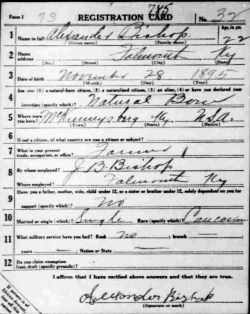 Form 1
745
REGISTRATION CARD
No. 32
1 Name in full Alexander Bishop
(Given name) (Family name)
Age, in yrs. 22
2 Home address Falmouth Ky
(No.) (Street) (City) (State)
3 Date of birth November 28 1895
(Month) (Day) (Year)
4 Are you (1) a natural-born citizen, (2) a naturalized citizen, (3) an alien, (4) or have you declared your intention (specify which)? Natural Born
5 Where were you born? McKinneysburg Ky. USA
(Town) (State) (Nation)
6 If not a citizen, of what country are you a citizen or subject?
7 What is your present trade, occupation, or office? Farmer
8 By whom employed? J B Bishop
Where employed? Falmouth Ky
9 Have you a father, mother, wife, child under 12, or a sister or brother under 12, solely dependent on you for support (specify which)? No
10 Married or single (which)? Single Race (specify which)? Caucasian
11 What military service have you had? Rank No branch
years Nation or State
12 Do you claim exemption from draft (specify grounds)?
I affirm that I have verified above answers and that they are true.
Alexander Bishop
(Signature or mark)